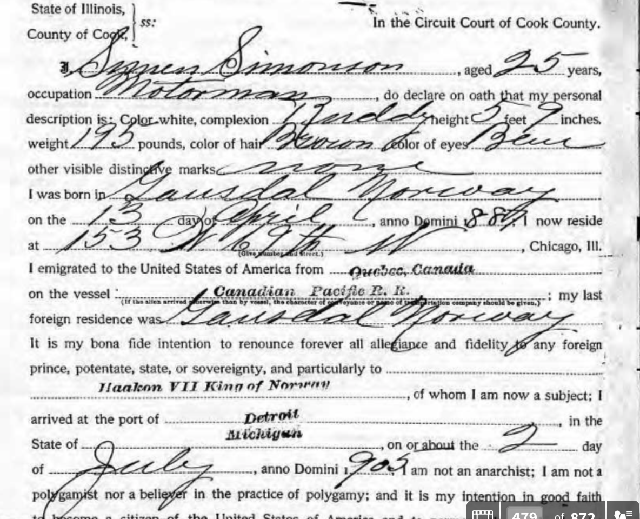 State of Illinois,
County of Cook, } ss:
In the Circuit Court of Cook County.
I, Simen Simonson, aged 25 years,
occupation Motorman, do declare on oath that my personal
description is: Color white, complexion Ruddy height 5 feet 9 inches.
weight 195 pounds, color of hair Brown color of eyes Blue
other visible distinctive marks none
I was born in Gausdal Norway
on the 13 day of April, anno Domini I now reside
at 153 W 69th St, Chicago, Ill.
(Give number and street.)
I emigrated to the United States of America from Quebec, Canada
on the vessel Canadian Pacific R. R. ; my last
(If the alien arrived otherwise than by vessel, the character of conveyance or name of transportation company should be given.)
foreign residence was Gausdal Norway
It is my bona fide intention to renounce forever all allegiance and fidelity to any foreign
prince, potentate, state, or sovereignty, and particularly to
Haakon VII King of Norway, of whom I am now a subject; I
arrived at the port of Detroit, in the
State of Michigan, on or about the 2 day
of July, anno Domini 1905 I am not an anarchist; I am not a
polygamist nor a believer in the practice of polygamy; and it is my intention in good faith
to become a citizen of the United States of America and to
479 of 872